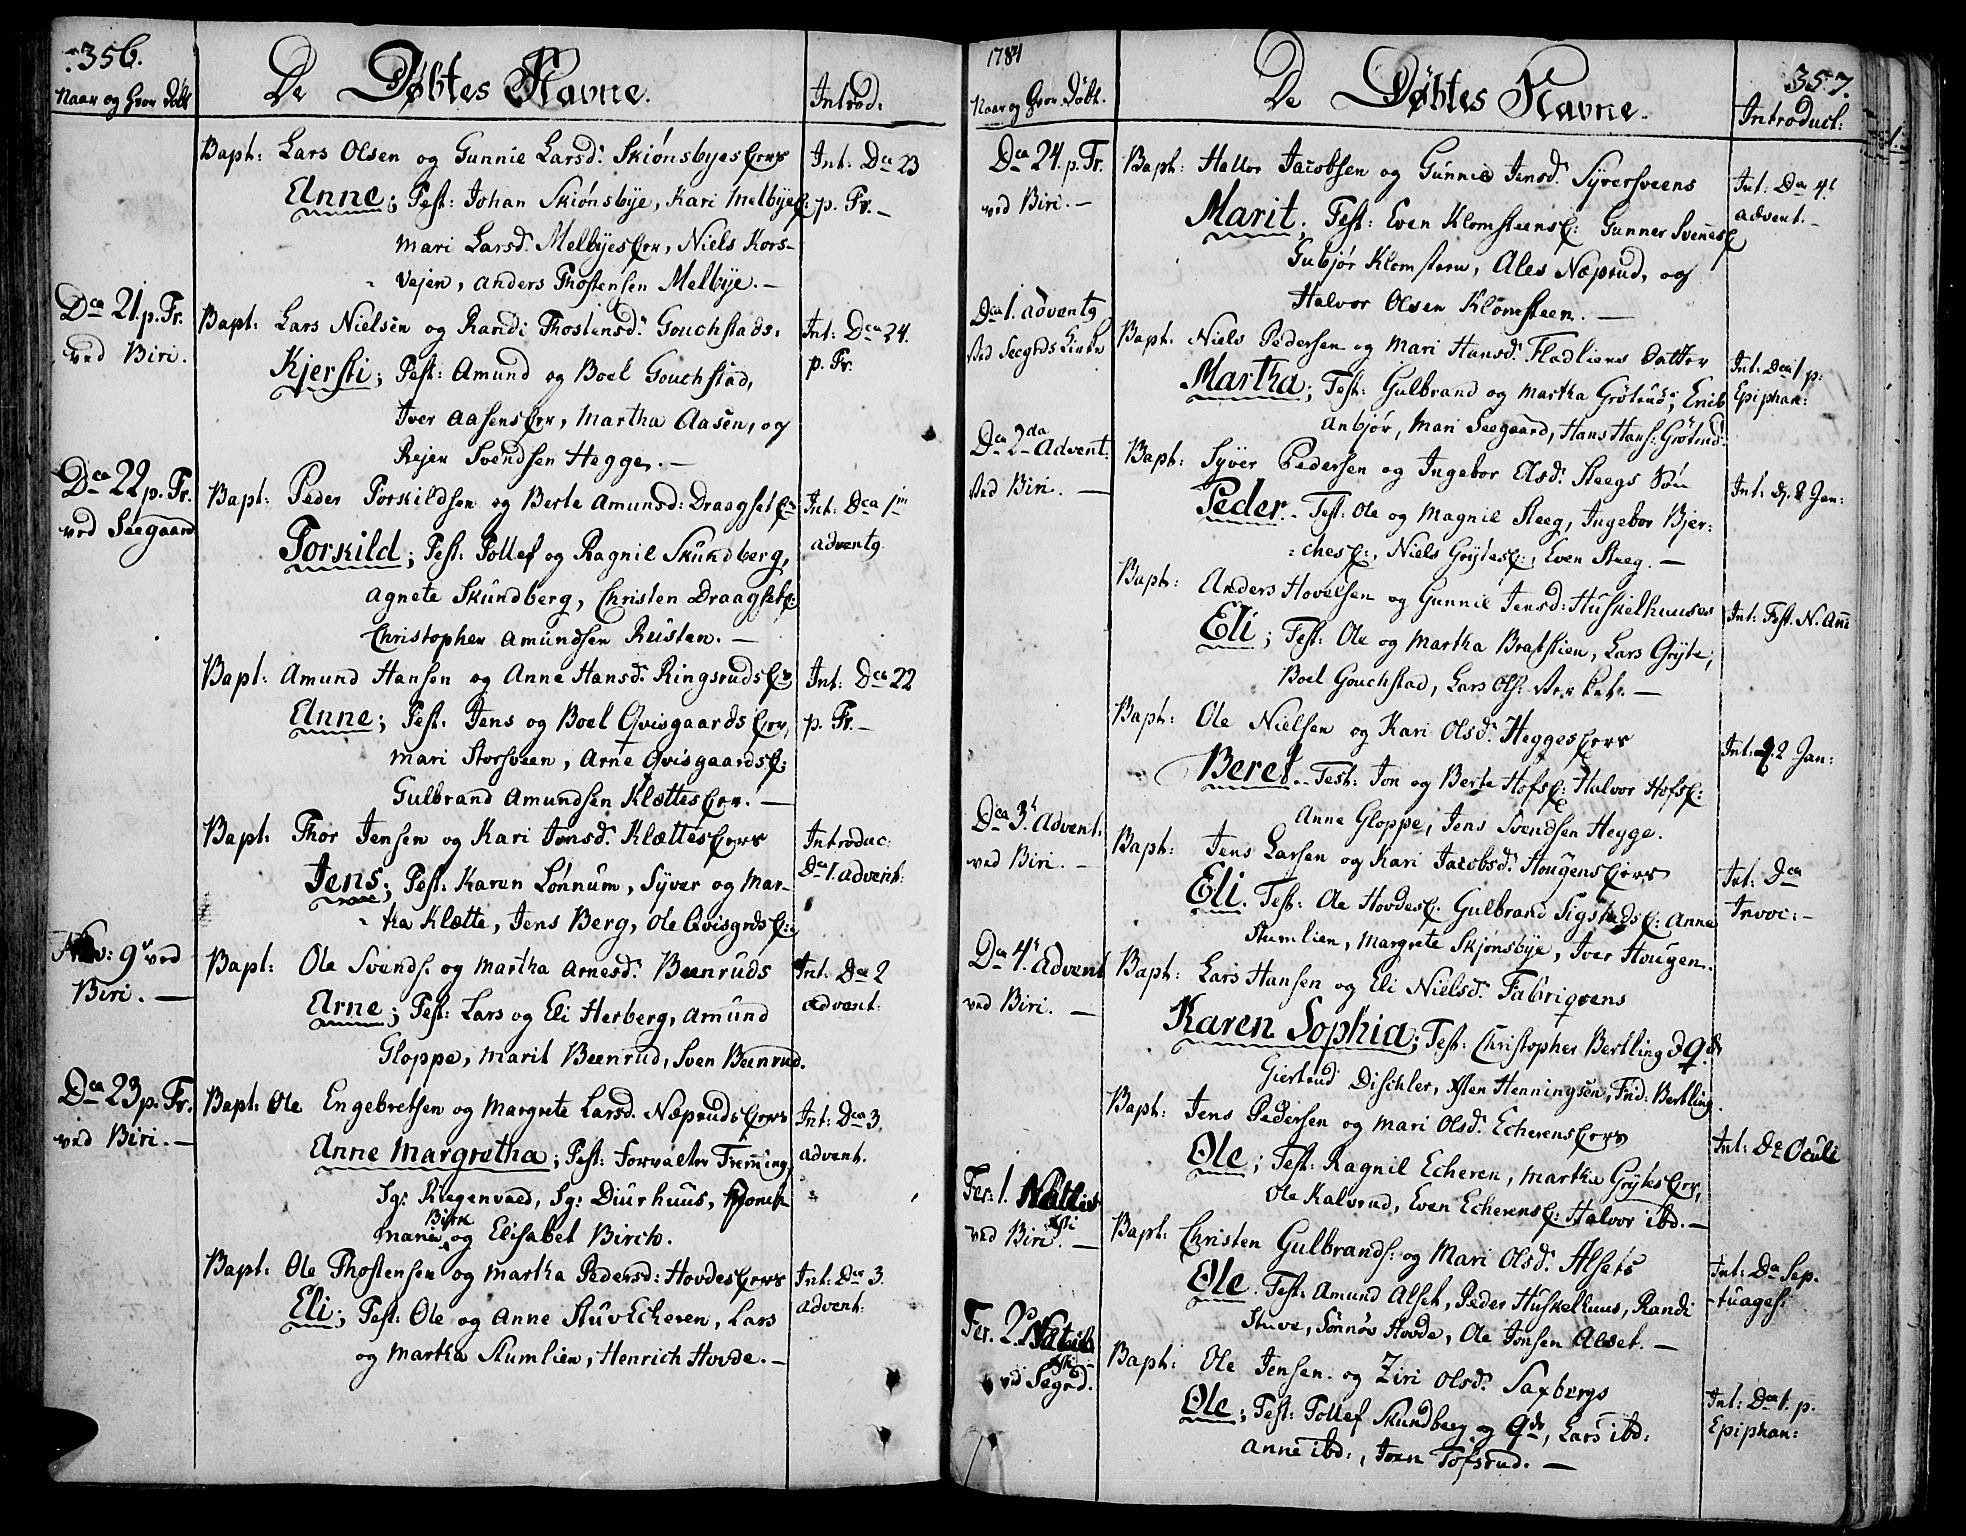 356.
Naar og Hvor Døbt
De Døbtes Navne.
Introd:
Bapt: Lars Olsen og Gunnie Larsd. Skiønsbyes
Int: Dca 23
Anne; Test: Johan Skiønsbye, Kari Melbyes
p. Tr. —
Mari Larsd. Melbyes, Niels Kors-
vejen, Anders Thostensen Melbye. —
Dca 21. p. Tr.
ved Biri.
Bapt: Lars Nielsen og Randi Thostensd. Gouchstads
Int: Dca 24.
p. Tr.
Kjersti; Test: Amund og Boel Gouchstad,
Iver Aasens, Martha Aasen, og
Rejer Svendsen Hegge. —
Dca 22 p. Tr.
ved Seegaard
Bapt: Peder Torkildsen og Berte Amunds: Draagset
Int: Dca 1
Torkild; Test: Tollef og Ragnil Skundberg,
adventq
Agnete Skundberg, Christen Draagset
Christopher Amundsen Rusten. —
Bapt: Amund Hansen og Anne Hansd. Ringsruds
Int: Dca 22
Anne; Test: Jens og Boel Qvisgaards
p. Tr. —
Mari Storsveen, Arne Qvisgaards
Gulbrand Amundsen Klættes. —
Bapt: Thor Jensen og Kari Jonsd. Klættes
Introduc:
Dca 1. advent:
Jens; Test: Karen Lønnum, Syver og Mar-
tha Klætte, Jens Berg, Ole Qvisgrds
Nov: 9 ved
Biri. —
Bapt: Ole Svends. og Martha Arnesd. Beenruds
Int: Dca 2
Arne; Test: Lars og Eli Herberg, Amund
advent:
Gloppe, Marit Beenrud, Sven Beenrud.
Dca 23 p. Tr.
ved Biri. —
Bapt: Ole Engebretsen og Margrete Larsd. Næpruds
Int: Dca 3.
Anne Margretha; Test: Forvalter Fremming,
advent.
Sg: Riegenvaed, Sg: Diurhuus,
Birk
og Elisabet Birch.
Bapt: Ole Thostensen og Martha Pedersd: Hovdes
Int: Dca 3.
Eli; Test: Ole og Anne Stuv Echeren, Lars
advent:
og Martha Stumlien, Henrich Hovde. —
1784
357.
Naar og Hvor Døbt.
De Døbtes Navne.
Introduct:
Dca 24. p. Tr.
ved Biri. —
Bapt: Halvor Jacobsen og Gunnie Jensd. Syversveens
Int: Dca 4
advent. —
Marit; Test: Even Klomsteens: Gunner Svenes
Gubjør Klomsteen, Ales Næprud, og
Halvor Olsen Klomsteen. —
Dca 1. adventq
ved Seegrds Kirke
Bapt: Niels Pedersen og Mari Hansd. Fladliens Datter
Int: Dca 1 p:
Martha; Test: Gulbrand og Martha Grøtrud; Erich
Epiphan:
Anbjør, Mari Seegaard, Hans Hans: Grøtrud.
Dca 2da Advent.
ved Biri. —
Bapt: Syver Pedersen og Ingebor Olsd. Steegs Søn
Int: D. 2 Jan:
Peder. Test: Ole og Magnil Steeg, Ingebor Bjer-
ches, Niels Grytes, Even Steeg. —
Bapt: Anders Hovelsen og Gunnil Jensd: Huskelhuuses
Int: Fest. N. Anni
Eli; Test: Ole og Martha Bratlien, Lars Gryte,
Boel Gouchstad, Lars Ols:
Bapt: Ole Nielsen og Kari Olsd. Hegges
Int: 2 Jan:
Beret. Test: Jon og Berte Hofs Halvor Hofs
Anne Gloppe, Jens Svendsen Hegge.
Dca 3. Advent.
ved Biri. —
Bapt: Jens Larsen og Kari Jacobsd. Hougens
Int: Dca
Invoc: —
Eli. Test: Ole Hovdes, Gulbrand Sigstads: Anne
Stumlien, Margrete Skjønsbye, Iver Hougen.
Dca 4. Advent
ved Biri. —
Bapt: Lars Hansen og Eli Nielsd. Fabriqvens
Karen Sophia; Test: Christopher Bertling
Giertrud Dischler, Henningsen, Frid: Bertling.
Bapt: Jens Pedersen og Mari Olsd. Echerens
Int: De Oculi
Ole; Test: Ragnil Echeren, Martha Grytes,
Ole Kalvrud, Even Echerens Halvor ibd. —
Fer: 1. Natalis
Xsti
ved Biri. —
Bapt: Christen Gulbrands: og Mari Olsd. Alsets
Int: Da Sep.
-tuages:
Ole. Test: Amund Alset, Peder Huskelhuus, Randi
Stuve, Sønnøv Hovde, Ole Jonsen Alset. —
Fer. 2 Natal:
Xsti
ved Segrd.
Bapt: Ole Jensen og Ziri Olsd. Saxbergs
Int: Dca 1. p.
Epiphan:
Ole; Test: Tollef Skundberg og, Lars ibd:
Anne ibd:, Joen Tofsrud. —